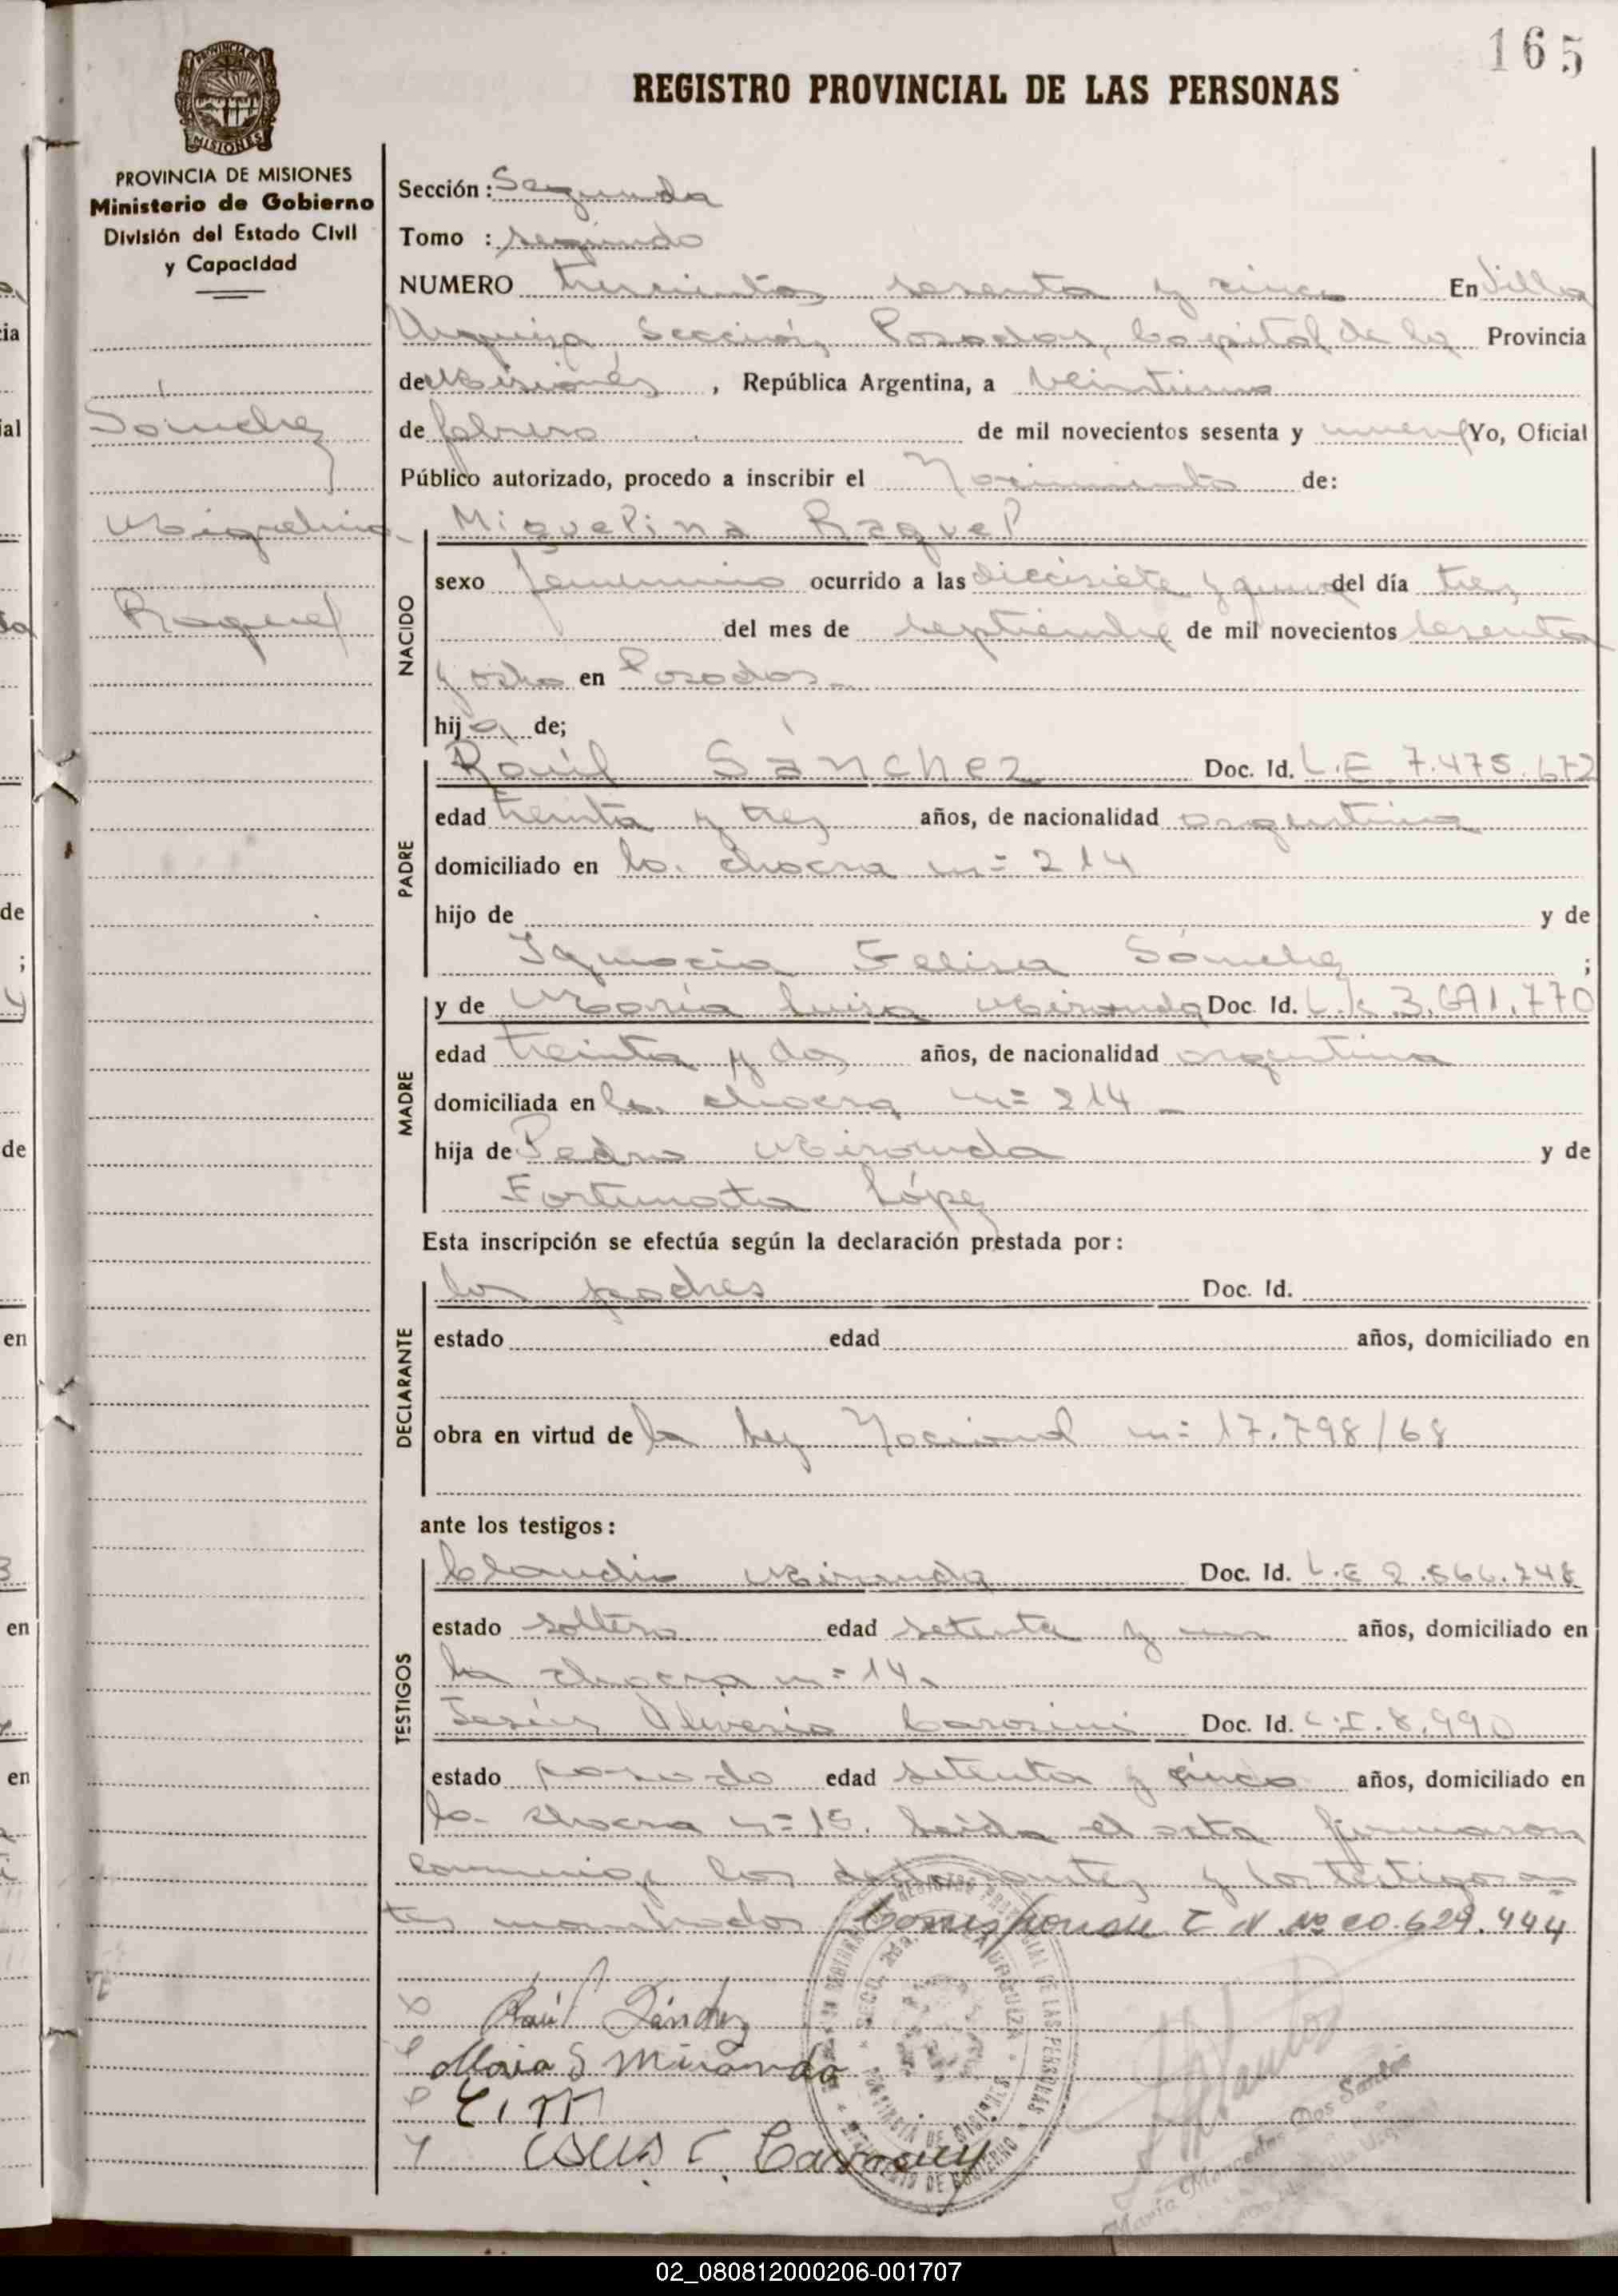 165
REGISTRO PROVINCIAL DE LAS PERSONAS
PROVINCIA DE MISIONES
Ministerio de Gobierno
División del Estado Civil
y Capacidad
Sánchez
Miguelina
Raquel
Sección: Segunda
Tomo : segundo
NUMERO trescientos sesenta y cinco En Villa
Urquiza Sección, Posadas, Capital de la Provincia
de Misiones, República Argentina, a veintiuno
de febrero de mil novecientos sesenta y nueve Yo, Oficial
Público autorizado, procedo a inscribir el Nacimiento de:
NACIDO
Miguelina Raquel
sexo femenino ocurrido a las diecisiete y quince del día tres
del mes de septiembre de mil novecientos sesenta
y ocho en Posadas.
hija de;
PADRE
Raúl Sánchez Doc. Id. L.E. 7.475.672
edad treinta y tres años, de nacionalidad argentina
domiciliado en la chacra nº 214
hijo de y de
Ignacia Felisa Sánchez ;
MADRE
y de María Luisa Miranda Doc. Id. L.C. 3.691.770
edad treinta y dos años, de nacionalidad argentina
domiciliada en la chacra nº 214
hija de Pedro Miranda y de
Fortunata López
Esta inscripción se efectúa según la declaración prestada por:
DECLARANTE
los padres Doc. Id.
estado edad años, domiciliado en
obra en virtud de la ley Nacional nº 17.798/68
ante los testigos:
TESTIGOS
Claudio Miranda Doc. Id. L.E 2.566.248
estado soltero edad setenta y un años, domiciliado en
la chacra nº 14.
Jesús Oliverio Doc. Id. C.I. 8.990
estado casado edad setenta y cinco años, domiciliado en
la chacra nº 15. Leída el acta firmaron
conmigo los declarantes y los testigos an
tes nombrados Corresponde C N Nº 20.629.444
Raúl Sánchez
Maria L Miranda
María Mercedes Dos Santos
02_080812000206-001707